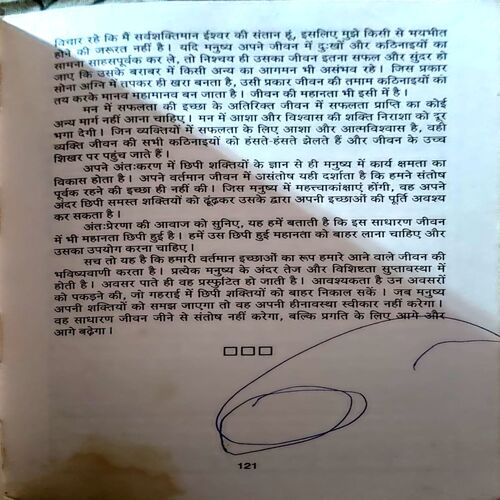 विचार रखे कि मैं सर्वशक्तिमान ईश्वर की संतान हूं, इसलिए मुझे किसी से भयभीत
होने की जरूरत नहीं है। यदि मनुष्य अपने जीवन में दुःखों और कठिनाइयों का
सामना साहसपूर्वक कर ले, तो निश्चय ही उसका जीवन इतना सफल और सुंदर हो
जाए कि उसके बराबर में किसी अन्य का आगमन भी असंभव रहे। जिस प्रकार
सोना अग्नि में तपकर ही खरा बनता है, उसी प्रकार जीवन की तमाम कठिनाइयों को
तय करके मानव महामानव बन जाता है। जीवन की महानता भी इसी में है।
मन में सफलता की इच्छा के अतिरिक्त जीवन में सफलता प्राप्ति का कोई
अन्य मार्ग नहीं आना चाहिए। मन में आशा और विश्वास की शक्ति निराशा को दूर
भगा देगी। जिन व्यक्तियों में सफलता के लिए आशा और आत्मविश्वास है, वही
व्यक्ति जीवन की सभी कठिनाइयों को हंसते-हंसते झेलते हैं और जीवन के उच्च
शिखर पर पहुंच जाते हैं।
अपने अंतःकरण में छिपी शक्तियों के ज्ञान से ही मनुष्य में कार्य क्षमता का
विकास होता है। अपने वर्तमान जीवन में असंतोष यही दर्शाता है कि हमने संतोष
पूर्वक रहने की इच्छा ही नहीं की। जिस मनुष्य में महत्त्वाकांक्षाएं होंगी, वह अपने
अंदर छिपी समस्त शक्तियों को ढूंढ़कर उसके द्वारा अपनी इच्छाओं की पूर्ति अवश्य
कर सकता है।
अंतःप्रेरणा की आवाज को सुनिए, यह हमें बताती है कि इस साधारण जीवन
में भी महानता छिपी है। हमें उस छिपी हुई महानता को बाहर लाना चाहिए और
उसका उपयोग करना चाहिए।
सच तो यह है कि हमारी वर्तमान इच्छाओं का रूप हमारे आने वाले जीवन की
भविष्यवाणी करता है। प्रत्येक मनुष्य के अंदर तेज और विशिष्टता सुप्तावस्था में
होती है। अवसर पाते ही वह प्रस्फुटित हो जाती है। आवश्यकता है उन अवसरों
को पकड़ने की, जो गहराई में छिपी शक्तियों को बाहर निकाल सकें। जब मनुष्य
अपनी शक्तियों को समझ जाएगा तो वह अपनी हीनावस्था स्वीकार नहीं करेगा।
वह साधारण जीवन जीने से संतोष नहीं करेगा, बल्कि प्रगति के लिए आगे और
आगे बढ़ेगा।
121